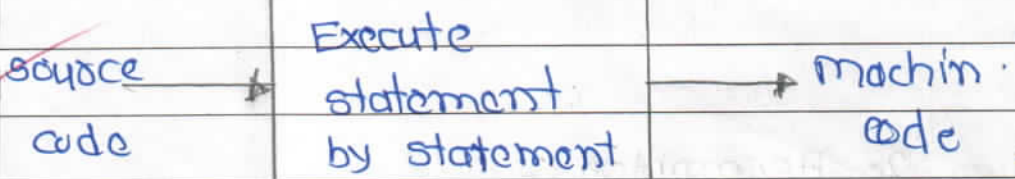 source
code
Execute
statement
by statement
machin.
code